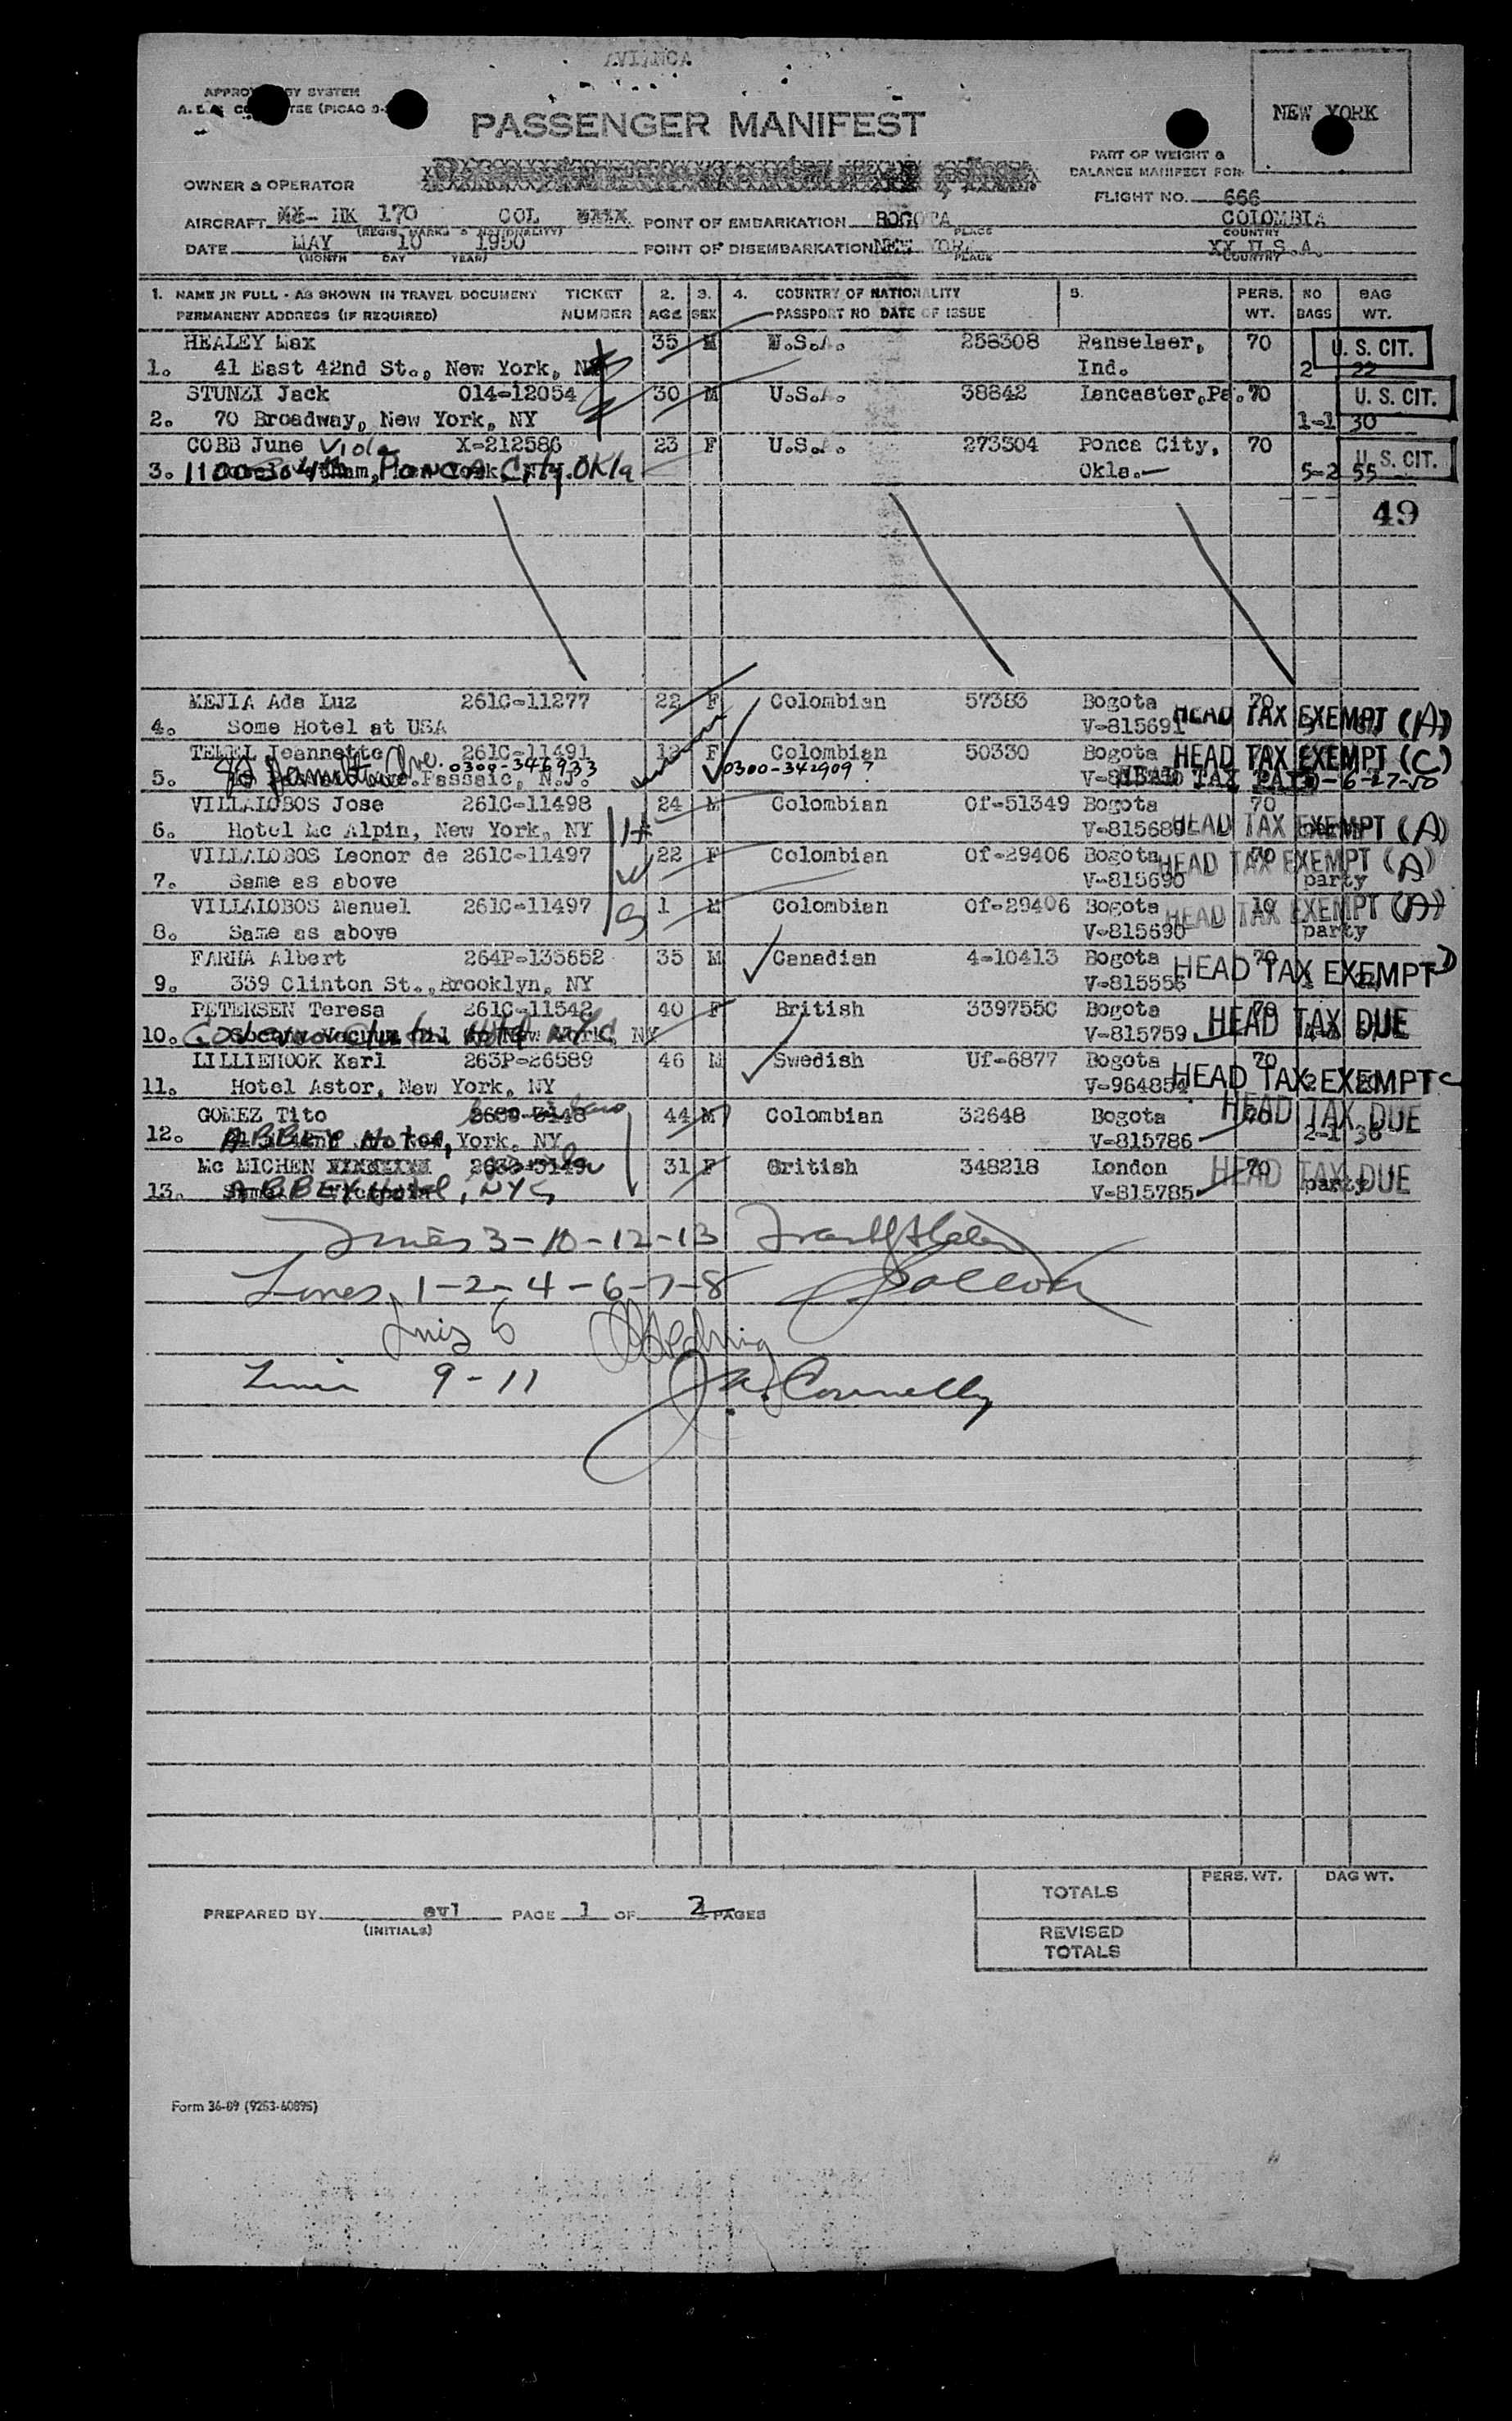 AVIANCA
NEW YORK
PASSENGER MANIFEST
PART OF WEIGHT &
BALANCE MANIFEST FOR
OWNER & OPERATOR
FLIGHT NO. 666
AIRCRAFT HK 170 COL POINT OF EMBARKATION BOGOTA COLOMBIA
(REGIS. MARKS & NATIONALITY) PLACE COUNTRY
DATE MAY 10 1950 POINT OF DISEMBARKATION NEW YORK XX U.S.A.
(MONTH DAY YEAR) PLACE COUNTRY
1. NAME IN FULL - AS SHOWN IN TRAVEL DOCUMENT TICKET 2. 3. 4. COUNTRY OF NATIONALITY 5. PERS. NO BAG
PERMANENT ADDRESS (IF REQUIRED) NUMBER AGE SEX PASSPORT NO DATE OF ISSUE WT. BAGS WT.
HEALEY Max 35 M U.S.A. 258308 Renselaer, 70 U. S. CIT.
1. 41 East 42nd St., New York, NY Ind. 2 22
STUNZI Jack 014-12054 30 M U.S.A. 38842 Lancaster,Pa. 70 U. S. CIT.
2. 70 Broadway, New York, NY 1-1 30
COBB June Viola X-212586 23 F U.S.A. 273304 Ponca City, 70 U. S. CIT.
3. 1100-S. 4th, Ponca City. Okla Okla. 5-2 55
49
MEJIA Ada Luz 261C-11277 22 F Colombian 57383 Bogota 70
4. Some Hotel at USA V-815691 HEAD TAX EXEMPT (A)
Jeannette 261C-11491 F Colombian 50330 Bogota HEAD TAX EXEMPT (C)
5. Ave. 0300-346933 Passaic, N.J. 0300-342909 ? HEAD TAX PAID-6-27-50
VILLALOBOS Jose 261C-11498 24 M Colombian Of-51349 Bogota 70
6. Hotel Mc Alpin, New York, NY H V-815689 HEAD TAX EXEMPT (A)
VILLALOBOS Leonor de 261C-11497 22 F Colombian Of-29406 Bogota 70 HEAD TAX EXEMPT (A)
7. Same as above W V-815690 party
VILLALOBOS Manuel 261C-11497 1 M Colombian Of-29406 Bogota 10 HEAD TAX EXEMPT (A)
8. Same as above S V-815690 party
FARHA Albert 264P-135652 35 M Canadian 4-10413 Bogota 70 HEAD TAX EXEMPT D
9. 339 Clinton St.,Brooklyn, NY V-815556
PETERSEN Teresa 261C-11542 40 F British 339755C Bogota 70
10. Hotel NYC V-815759 HEAD TAX DUE
LILLIEHOOK Karl 263P-26589 46 M Swedish Uf-6877 Bogota 70
11. Hotel Astor, New York, NY V-964854 HEAD TAX EXEMPT C
GOMEZ Tito 44 M Colombian 32648 Bogota 70 HEAD TAX DUE
12. ABBEY Hotel, York, NY V-815786 2-1 36
Mc MICHEN 31 F British 348218 London 70 HEAD TAX DUE
13. ABBEY Hotel, NYC V-815785 party
Lines 3-10-12-13
Lines 1-2-4-6-7-8
Line 9-11 J. A. Connelly
TOTALS PERS. WT. BAG WT.
PREPARED BY evl PAGE 1 OF 2 PAGES
(INITIALS)
REVISED
TOTALS
Form 36-89 (9253-60895)